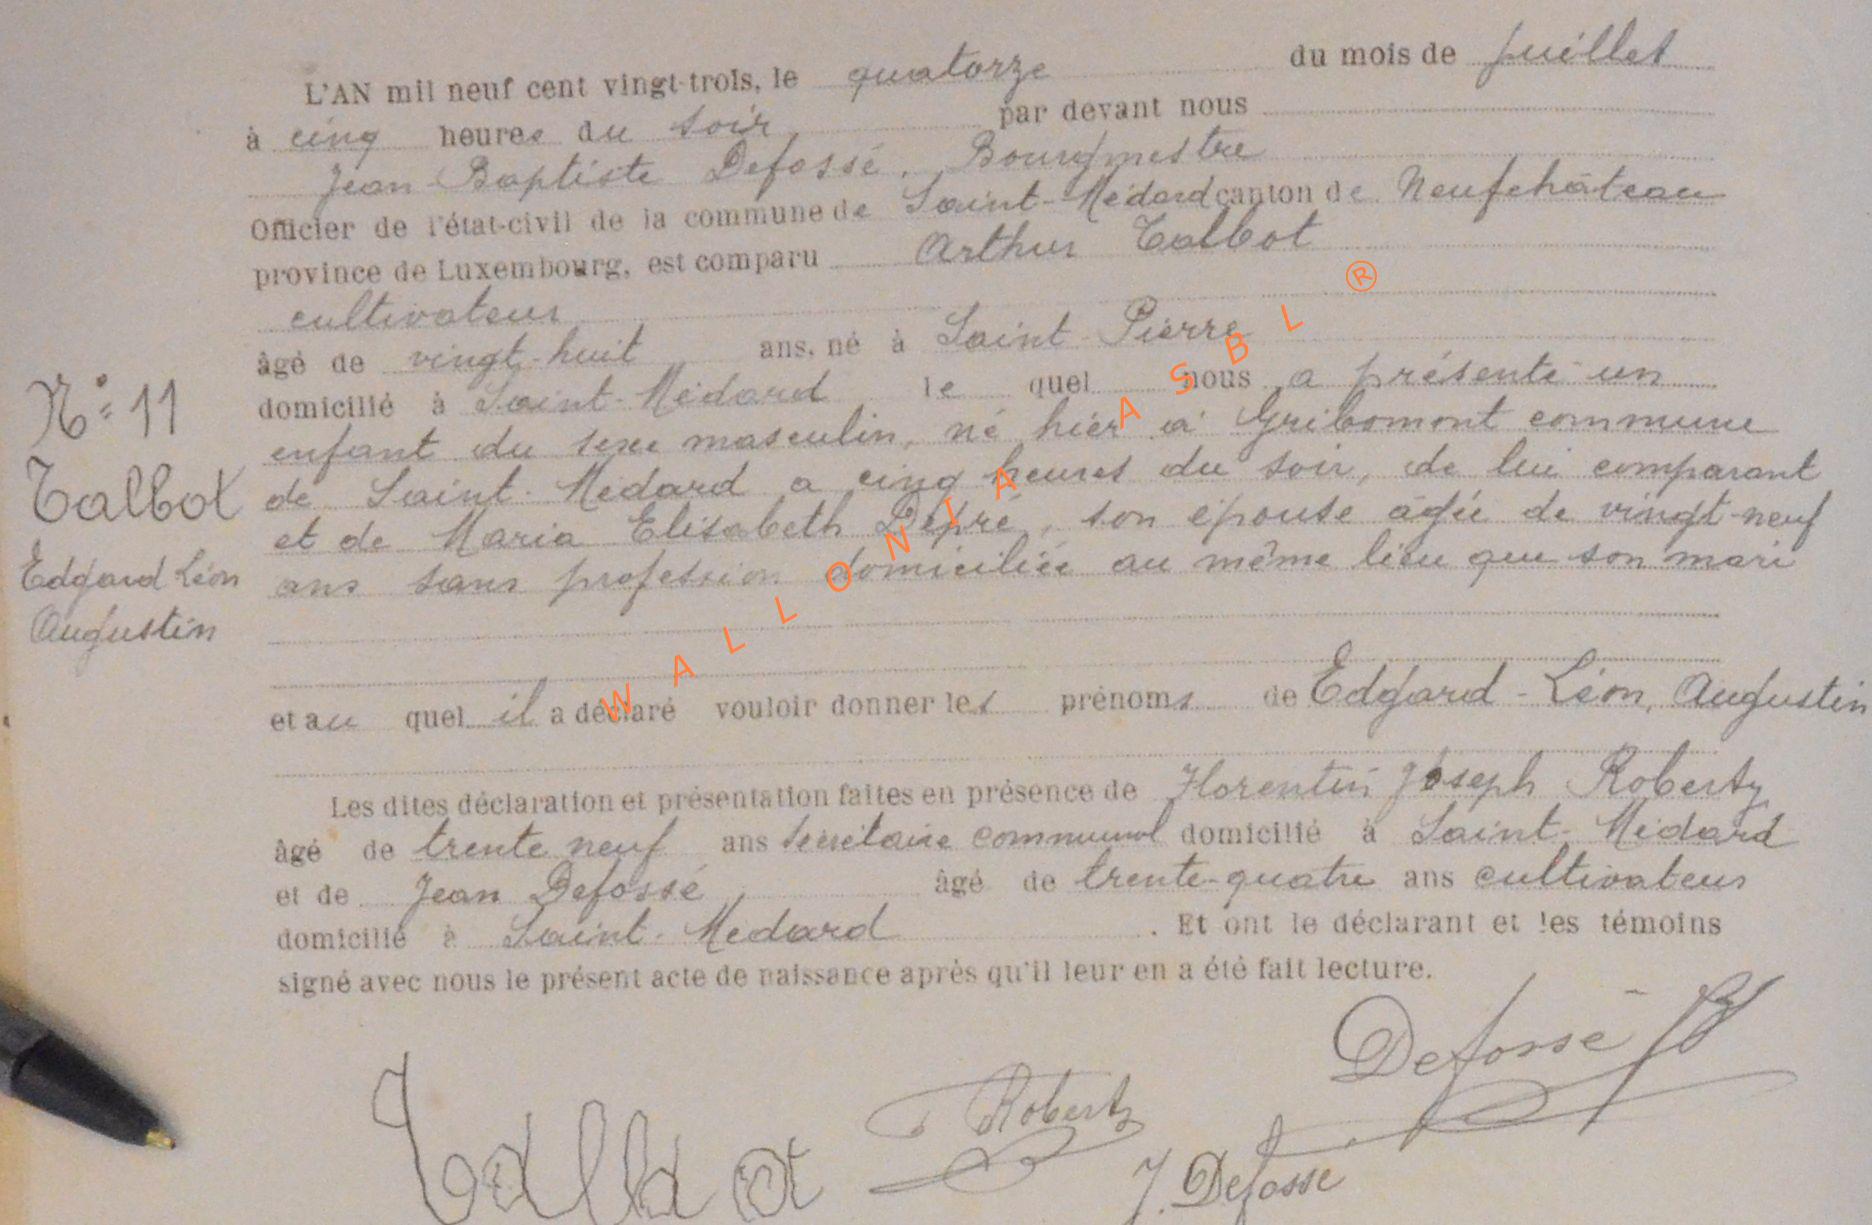 L'AN mil neuf cent vingt-trois, le quatorze du mois de juillet
à cinq heures du soir, par devant nous
Jean-Baptiste Defossé, Bourgmestre
Officier de l'état-civil de la commune de Saint-Médard canton de Neufchâteau
province de Luxembourg, est comparu Arthur Talbot
cultivateur
âgé de vingt-huit ans, né à Saint-Pierre
domicilié à Saint-Médard le quel nous a présenté un
enfant du sexe masculin, né hier à Gribomont commune
de Saint-Médard a cinq heures du soir, de lui comparant
et de Maria Elisabeth Depré, son épouse âgée de vingt-neuf
ans sans profession domiciliée au même lieu que son mari
et au quel il a déclaré vouloir donner les prénoms de Edgard-Léon, Augustin
Les dites déclaration et présentation faites en présence de Florentin Joseph Robertz
âgé de trente neuf ans secrétaire communal domicilié à Saint-Médard
et de Jean Defossé âgé de trente-quatre ans cultivateur
domicilié à Saint-Médard. Et ont le déclarant et les témoins
signé avec nous le présent acte de naissance après qu'il leur en a été fait lecture.
N° 11
Talbot
Edgard Léon
Augustin
WALLONIA ASBL ®
Defossé JB
Robertz
Talbot
J. Defosse